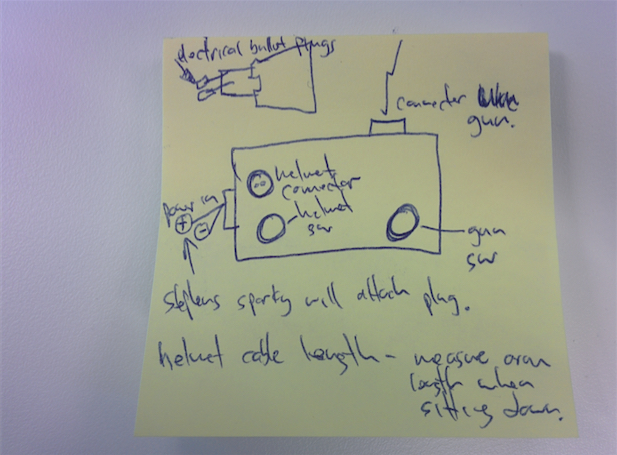 electrical bullet plugs
connector
gun.
helmet
connector
power in
helmet
+
-
gun
stephens sparky will attach plug.
helmet cable length - measure
length when
sitting down.